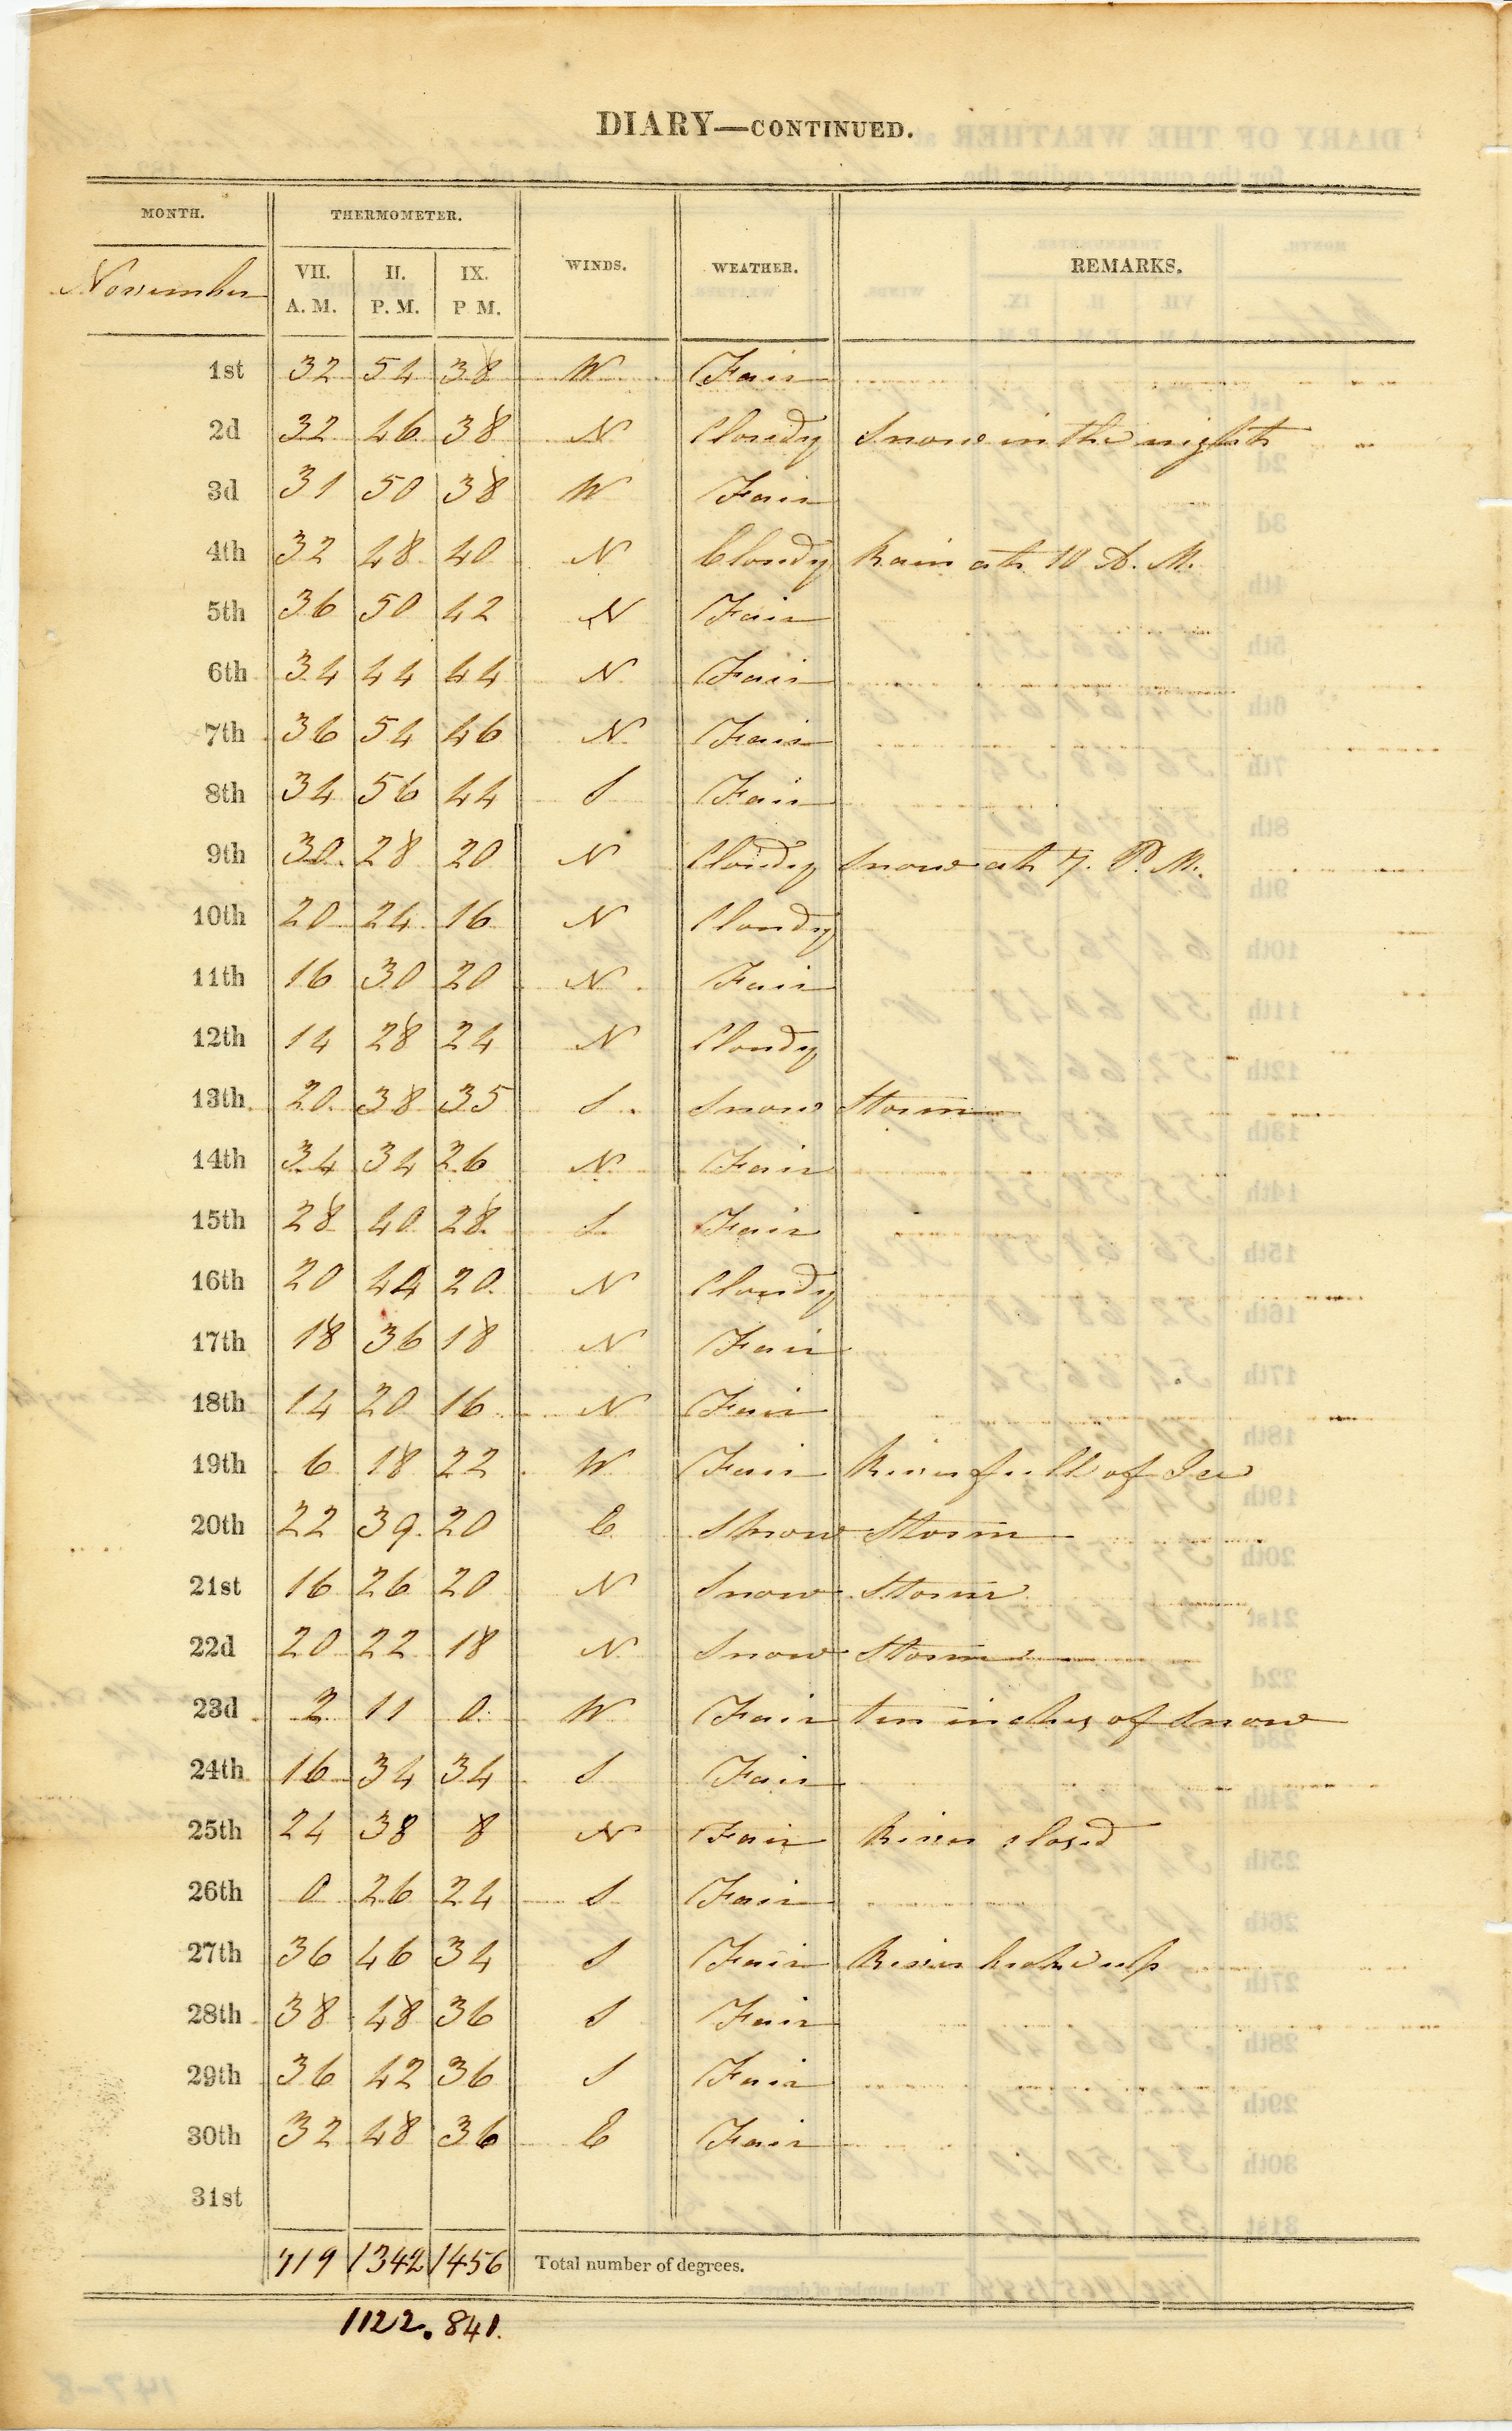 DIARY—CONTINUED.
MONTH. THERMOMETER. WINDS. WEATHER. REMARKS.
November VII. A. M. II. P. M. IX. P M.
1st 32 54 38 W Fair
2d 32 46 38 N Cloudy Snow in the night
3d 31 50 38 W Fair
4th 32 48 40 N Cloudy Rain at 10 A. M.
5th 36 50 42 N Fair
6th 34 44 44 N Fair
7th 36 54 46 N Fair
8th 34 56 44 S Fair
9th 30 28 20 N Cloudy Snow at 7. P. M.
10th 20 24 16 N Cloudy
11th 16 30 20 N Fair
12th 14 28 24 N Cloudy
13th 20 38 35 S. Snow Storm
14th 34 34 26 N Fair
15th 28 40 28 S Fair
16th 20 44 20 N Cloudy
17th 18 36 18 N Fair
18th 14 20 16 N Fair
19th 6 18 22 W Fair River full of Ice
20th 22 39 20 E Snow Storm
21st 16 26 20 N Snow Storm
22d 20 22 18 N Snow Storm
23d 2 11 0 W Fair ten inches of Snow
24th 16 34 34 S Fair
25th 24 38 8 N Fair River closed
26th 0 26 24 S Fair
27th 36 46 34 S Fair River broke up
28th 38 48 36 S Fair
29th 36 42 36 S Fair
30th 32 48 36 E Fair
31st
719 1342 1456 Total number of degrees.
1122. 841.